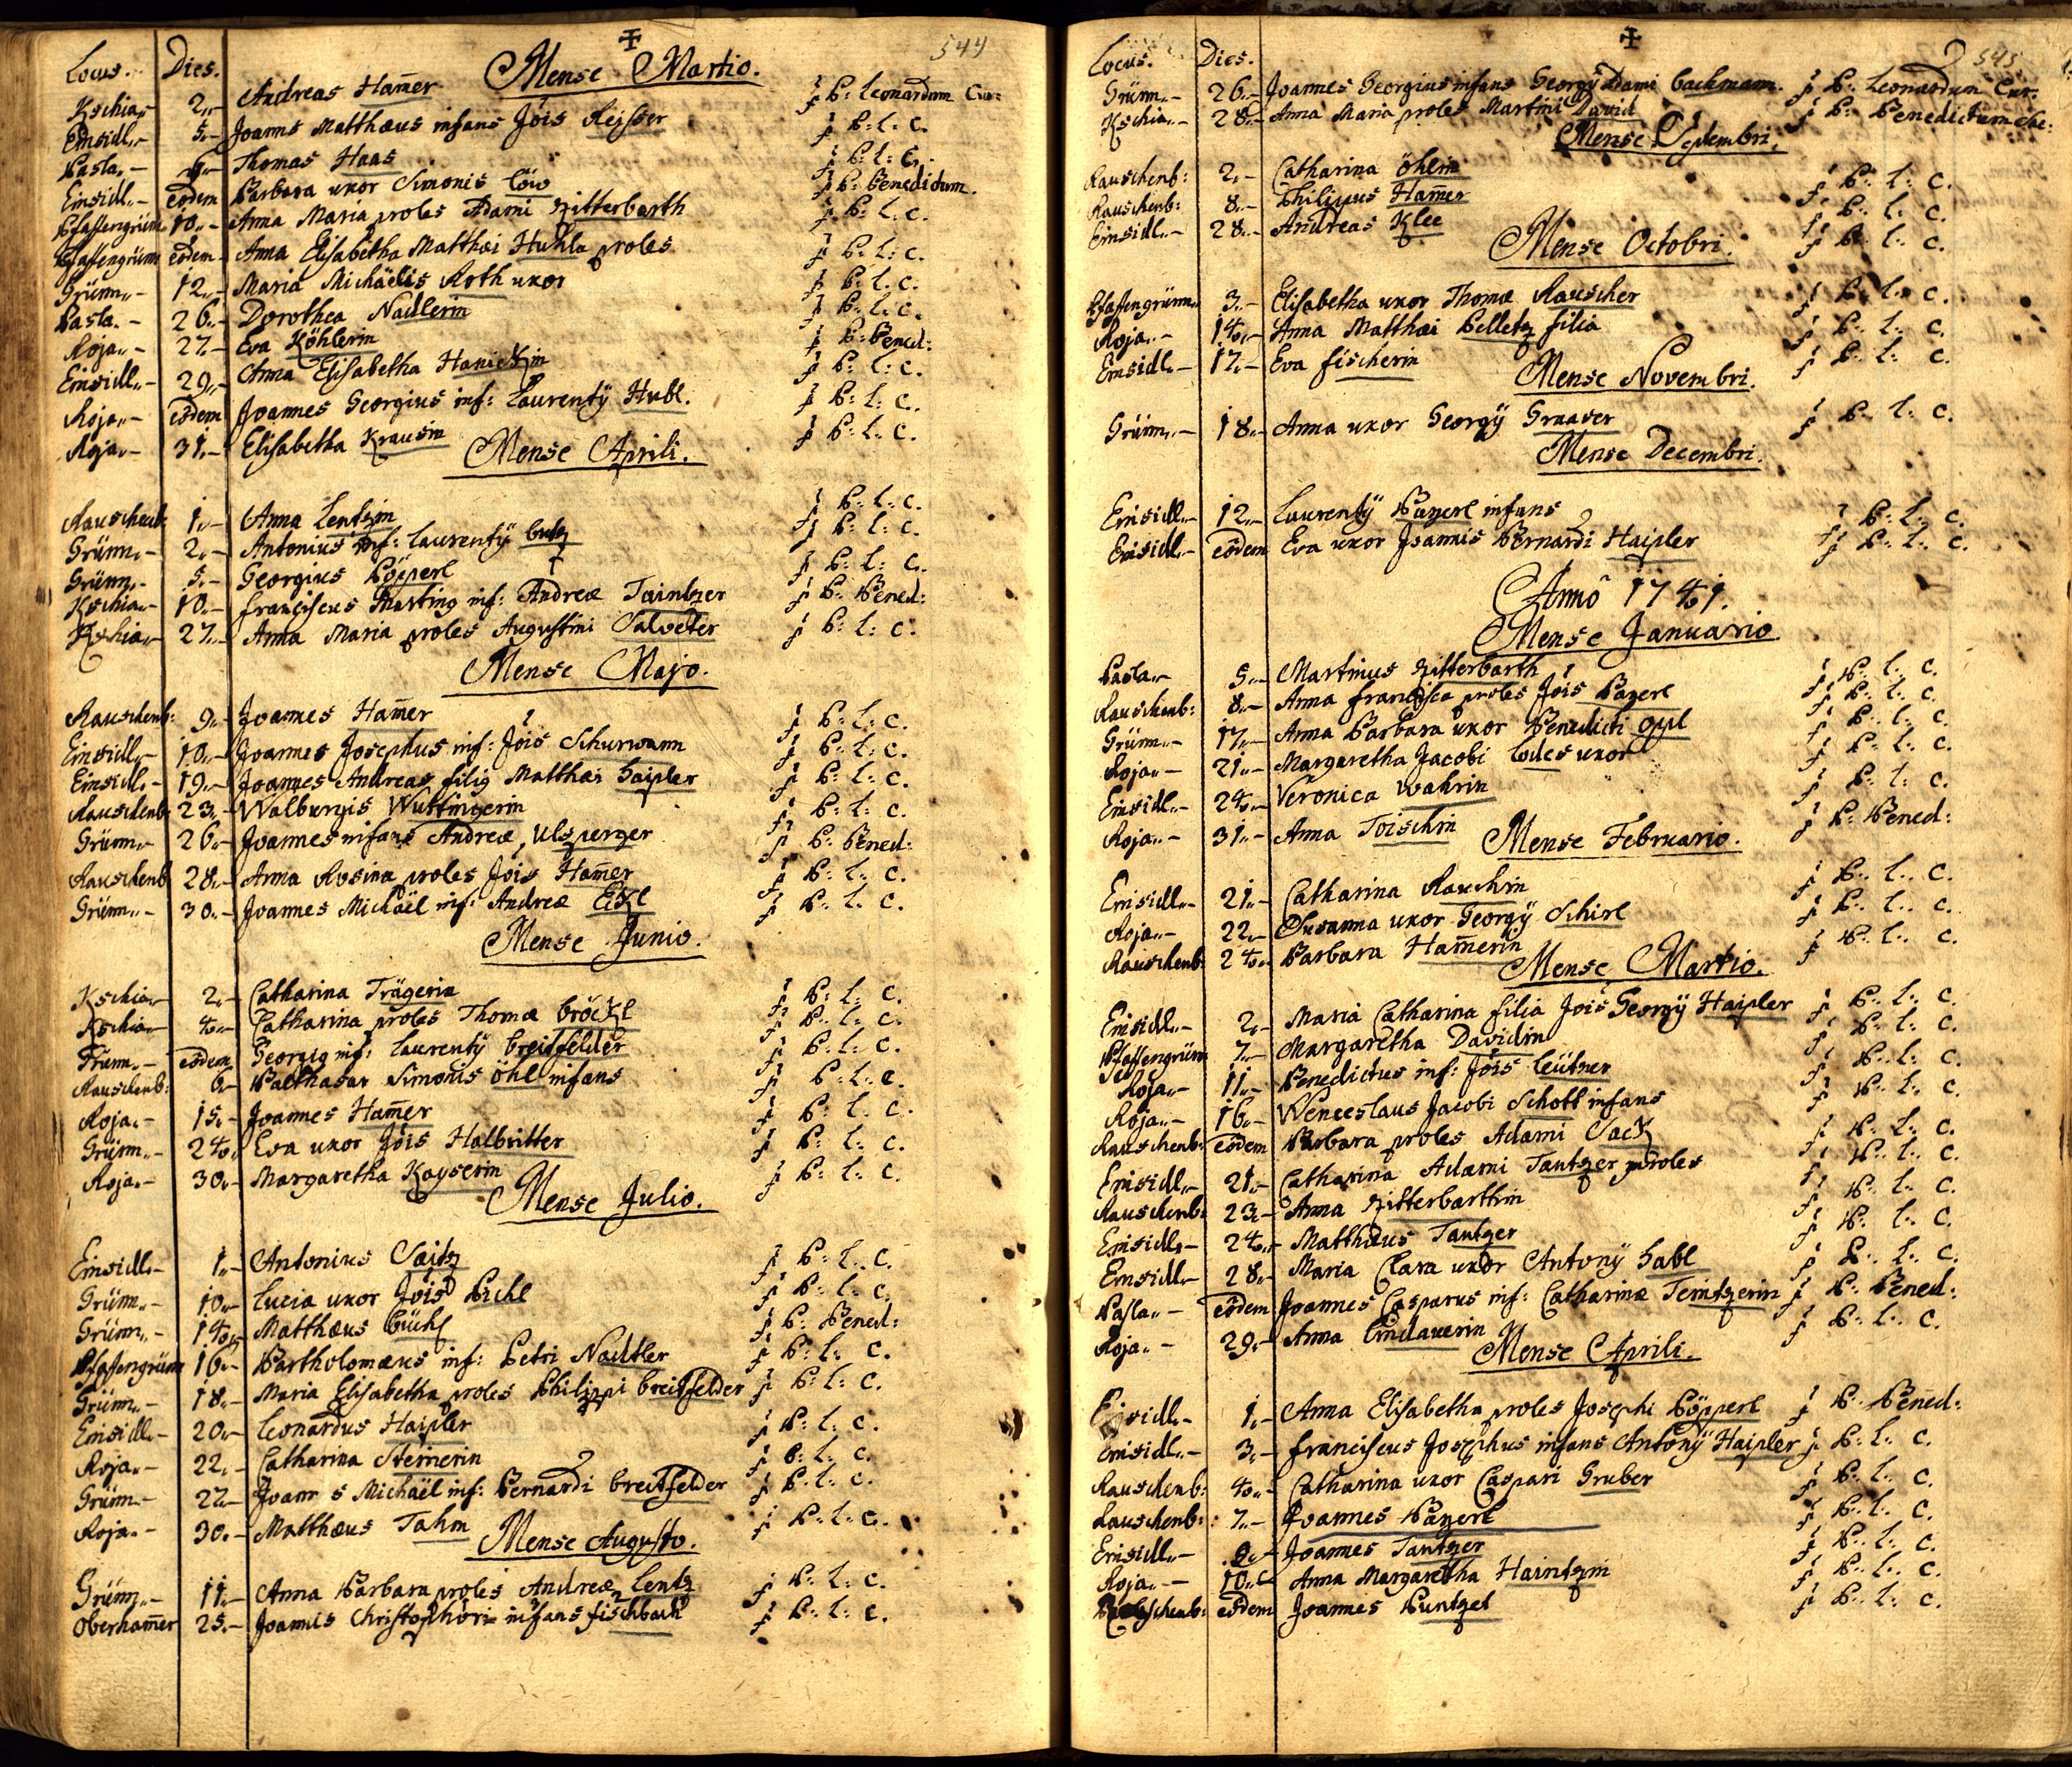 544
Locus. Dies. Mense Martio.
Kschia„ 2„ Andreas Ham̄er P: Leonardum Cur:
Einsidl„ 5„ Joanns Matthæus infans Jõis Reisser P: L: C.
Pasla„ 9„ Thomas Haas P: L: C.
Einsidl„ eodem Barbara uxor Simonis Löw P: Benedictum.
Pfaffengrün„ 10„ Anna Maria proles Adami Ritterbarth P: L: C.
Pfaffengrün„ eodem Anna Elisabetha Matthæi Huhla proles P: L: C.
Grünn„ 12„ Maria Michäelis Roth uxor P: L: C.
Pasla„ 26„ Dorothea Nadlerin P: L: C.
Roja„ 27„ Eva Köhlerin P: Bened:
Einsidl„ 29„ Anna Elisabetha Hanickin P: L: C.
Roja„ eodem Joannes Georgius inf: Laurentÿ Hubl. P: L: C.
Roja„ 31„ Elisabetha Krausin P: L: C.
Mense Aprili.
Rauschenb: 1„ Anna Lentzin P: L: C.
Grünn„ 2„ Antonius inf: Laurentÿ Lutz P: L: C.
Grünn„ 5„ Georgius Pöpperl P: L: C.
Kschia„ 10„ Franciscus Martinq inf: Andreæ Taintzer P: Bened:
Kschia„ 27„ Anna Maria proles Augustini Salveter P: L: C.
Mense Majo.
Rauschenb: 9„ Joannes Ham̄er P: L: C.
Einsidl„ 10„ Joannes Josephus inf: Jõis Schurwann P: L: C.
Einsidl„ 19„ Joannes Andreas filiq Matthæi Haipler P: L: C.
Rauschenb: 23„ Walburgis Wuttingerin P: L: C.
Grünn„ 26„ Joannes infans Andreæ Ulsperger P: Bened:
Rauschenb: 28„ Anna Rosina proles Jõis Ham̄er P: L: C.
Grünn„ 30„ Joannes Michäel inf: Andreæ Eckl P: L: C.
Mense Junio.
Kschia„ 2„ Catharina Trägerin P: L: C.
Kschia„ 4„ Catharina proles Thomæ Bröckl P: L: C.
Grünn„ eodem Georgiq inf: Laurentÿ Breitfelder P: L: C.
Rauschenb: 6„ Balthasar Simonis Öhl infans P: L: C.
Roja„ 15„ Joannes Ham̄er P: L: C.
Grünn„ 24„ Eva uxor Jõis Halbritter P: L: C.
Roja„ 30„ Margaretha Kayserin P: L: C.
Mense Julio.
Einsidl„ 1„ Antonius Saitz P: L: C.
Grünn„ 10„ Lucia uxor Jõis Pichl P: L: C.
Grünn„ 14„ Matthæus Büchl P: Bened:
Pfaffengrün 16„ Bartholomæus inf: Petri Nadler P: L: C.
Grünn„ 18„ Maria Elisabetha proles Philippi Breitfelder P: L: C.
Einsidl„ 20„ Leonardus Haipler P: L: C.
Roja„ 22„ Catharina Steinerin P: L: C.
Grünn„ 27„ Joann s Michäel inf: Bernardi Breitfelder P: L: C.
Roja„ 30„ Matthæus Tahm P: L: C.
Mense Augusto.
Grünn„ 11„ Anna Barbara proles Andreæ Lentz P: L: C.
Oberham̄er 25„ Joannis Christophori infans Fischbach P: L: C.
545
Locus. Dies.
Grünn„ 26„ Joannes Georgius infans Georgÿ Dami Bachmann. P: Leonardum Cur:
Kschia„ 28„ Anna Maria proles Martini David P: Benedictum
Mense Septembri.
Rauschenb: 2„ Catharina Öhlin P: L: C.
Rauschenb: 8„ Philippus Ham̄er P: L: C.
Einsidl„ 28„ Andreas Klee P: L: C.
Mense Octobri.
Pfaffengrünn 3„ Elisabetha uxor Thomæ Rauscher P: L: C.
Roja„ 14„ Anna Matthæi Pelletz filia P: L: C.
Einsidl„ 17„ Eva Fischerin P: L: C.
Mense Novembri.
Grünn„ 18„ Anna uxor Georgÿ Graaser P: L: C.
Mense Decembri.
Einsidl„ 12„ Laurentÿ Payerl infans P: L: C.
Einsidl„ eodem Eva uxor Joannis Bernardi Haipler P: L: C.
Annô 1741.
Mense Januario
Pasla„ 5„ Martinus Ritterbarth P: L: C.
Rauschenb: 8„ Anna Francisca proles Jõis Payerl P: L: C.
Grünn„ 17„ Anna Barbara uxor Benedicti Oppl P: L: C.
Roja„ 21„ Margaretha Jacobi Lodes uxor P: L: C.
Einsidl„ 24„ Veronica Wahrin P: L: C.
Roja„ 31„ Anna Toischin P: Bened:
Mense Februario.
Einsidl„ 21„ Catharina Rauchin P: L: C.
Roja„ 22„ Susanna uxor Georgÿ Schirl P: L: C.
Rauschenb: 24„ Barbara Ham̄erin P: L: C.
Mense Martio.
Einsidl„ 2„ Maria Catharina filia Jõis Georgÿ Haipler P: L: C.
Pfaffengrün 7„ Margaretha Davidin P: L: C.
Roja„ 11„ Benedictus inf: Jõis Leütner P: L: C.
Roja„ 16„ Wenceslaus Jacobi Schott infans P: L: C.
Rauschenb: eodem Barbara proles Adami Sack P: L: C.
Einsidl„ 21„ Catharina Adami Tantzer proles P: L: C.
Rauschenb: 23„ Anna Ritterbarthin P: L: C.
Einsidl„ 24„ Matthæus Tantzer P: L: C.
Einsidl„ 28„ Maria Clara uxor Antonÿ Habl P: L: C.
Pasla„ eodem Joannes Casparus inf: Catharinæ Teintzerin P: Bened:
Roja„ 29„ Anna Lindauerin P: L: C.
Mense Aprili.
Einsidl„ 1„ Anna Elisabetha proles Josephi Pöpperl P: Bened:
Einsidl„ 3„ Franciscus Josephus infans Antonÿ Haipler P: L: C.
Rauschenb: 4„ Catharina uxor Caspari Gruber P: L: C.
Rauschenb: 7„ Joannes Payerl P: L: C.
Einsidl„ 9„ Joannes Tantzer P: L: C.
Roja„ 10„ Anna Margaretha Haintzin P: L: C.
eodem Joannes Puntzel P: L: C.